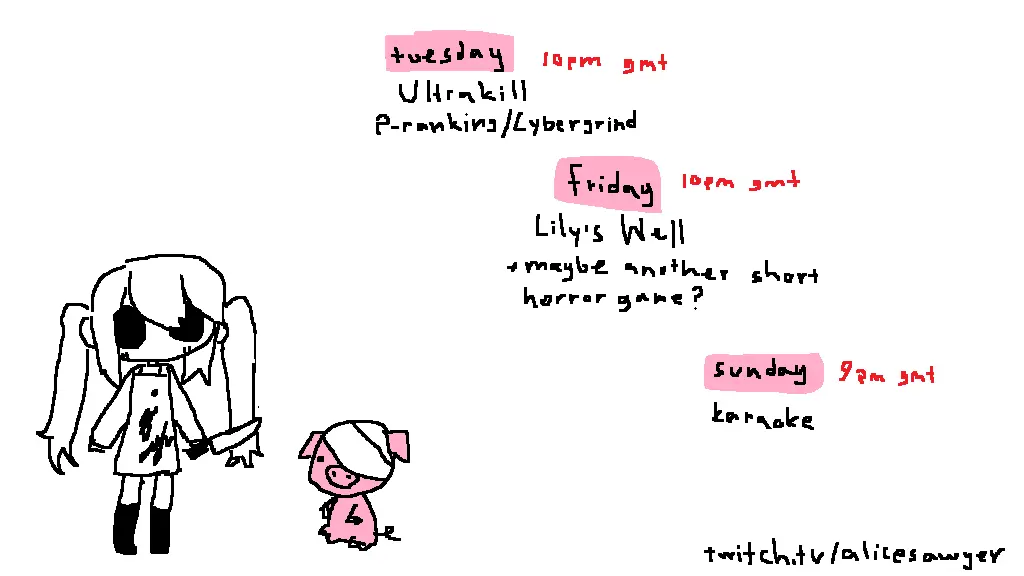 tuesday 10pm gmt
Ultrakill
P-ranking/Cybergrind
Friday 10pm gmt
Lily's Well
+maybe another short
horror game?
sunday 9pm gmt
karaoke
twitch.tv/alicesawyer